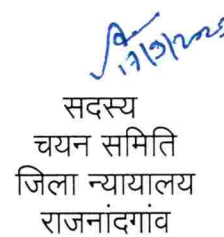 17/9/2025
सदस्य
चयन समिति
जिला न्यायालय
राजनांदगांव